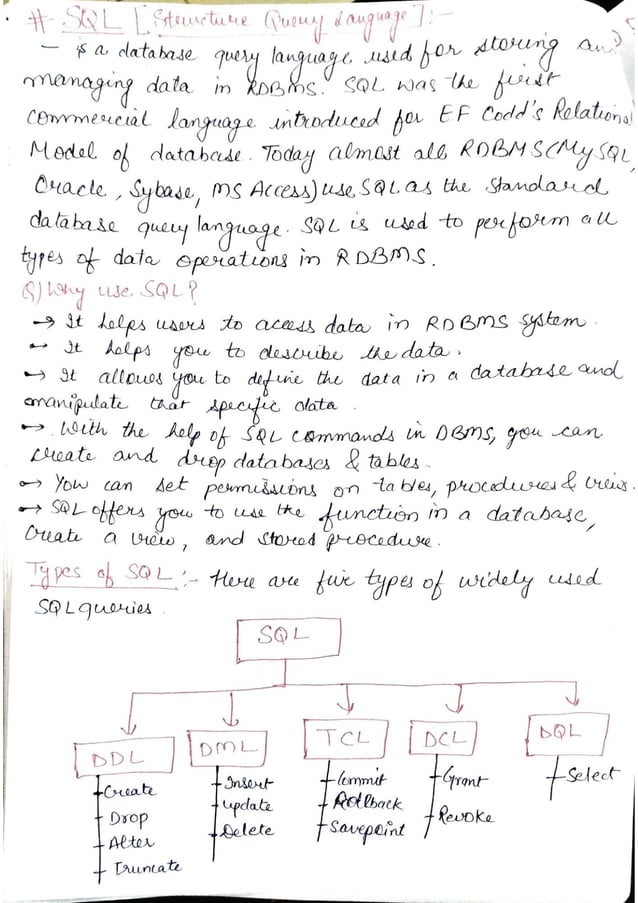 # SQL [Structure Query Language] :-
- is a database query language used for storing and
managing data in RDBMS. SQL was the first
commercial language introduced for EF Codd's Relational
Model of database. Today almost all RDBMS (MySQL,
Oracle, Sybase, MS Access) use SQL as the standard
database query language. SQL is used to perform all
types of data operations in RDBMS.
Q) Why use SQL?
→ It helps users to access data in RDBMS system.
→ It helps you to describe the data.
→ It allows you to define the data in a database and
manipulate that specific data.
→ With the help of SQL commands in DBMS, you can
create and drop databases & tables.
→ You can set permissions on tables, procedures & views.
→ SQL offers you to use the function in a database,
Create a view, and stored procedure.
Types of SQL :- Here are five types of widely used
SQL queries.
SQL
DDL DML TCL DCL DQL
Create Insert Commit Grant Select
Drop Update Rollback Revoke
Alter Delete Savepoint
Truncate